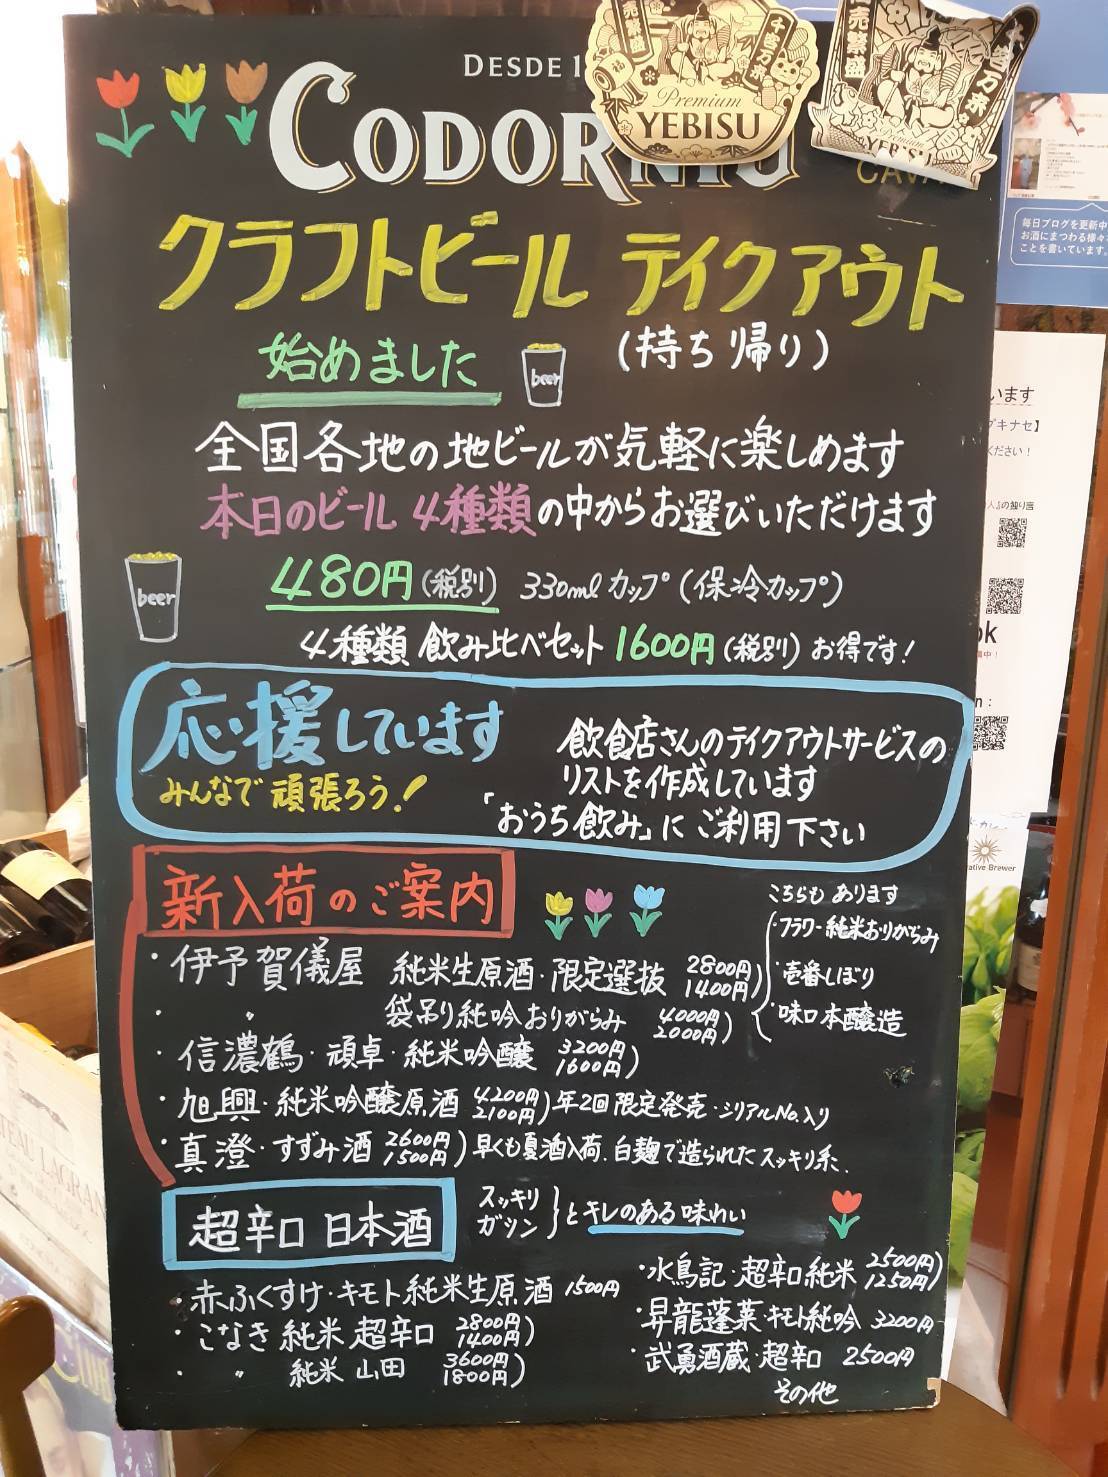 DESDE 1
CODORNIU
CAVA
Premium
YEBISU
千客万来
クラフトビール テイクアウト
始めました
(持ち帰り)
beer
全国各地の地ビールが気軽に楽しめます
本日のビール 4種類の中からお選びいただけます
beer
480円(税別) 330mlカップ(保冷カップ)
4種類 飲み比べセット 1600円(税別) お得です!
応援しています
みんなで頑張ろう!
飲食店さんのテイクアウトサービスの
リストを作成しています
「おうち飲み」にご利用下さい
新入荷のご案内
・伊予賀儀屋 純米生原酒・限定選抜 2800円 1400円)
・ 〃 袋吊り純吟おりがらみ 4000円 2000円)
こちらもあります
・フラワー純米おりがらみ
・壱番しぼり
・味口本醸造
・信濃鶴・頑卓・純米吟醸 3200円 1600円)
・旭興・純米吟醸原酒 4200円 2100円) 年2回限定発売・シリアルNo.入り
・真澄・すずみ酒 2600円 1500円) 早くも夏酒入荷.白麹で造られたスッキリ系.
超辛口 日本酒
スッキリ
ガツン
}とキレのある味わい
・赤ふくすけ・キモト純米生原酒 1500円
・こなき純米超辛口 2800円 1400円)
・ 〃 純米 山田 3600円 1800円)
・水鳥記・超辛口純米 2500円 1250円)
・昇龍蓬莱・キモト純吟 3200円
・武勇酒蔵・超辛口 2500円
その他
毎日ブログを更新中
お酒にまつわる様々
ことを書いています。
います
ください!
の独り言
ative Brewer